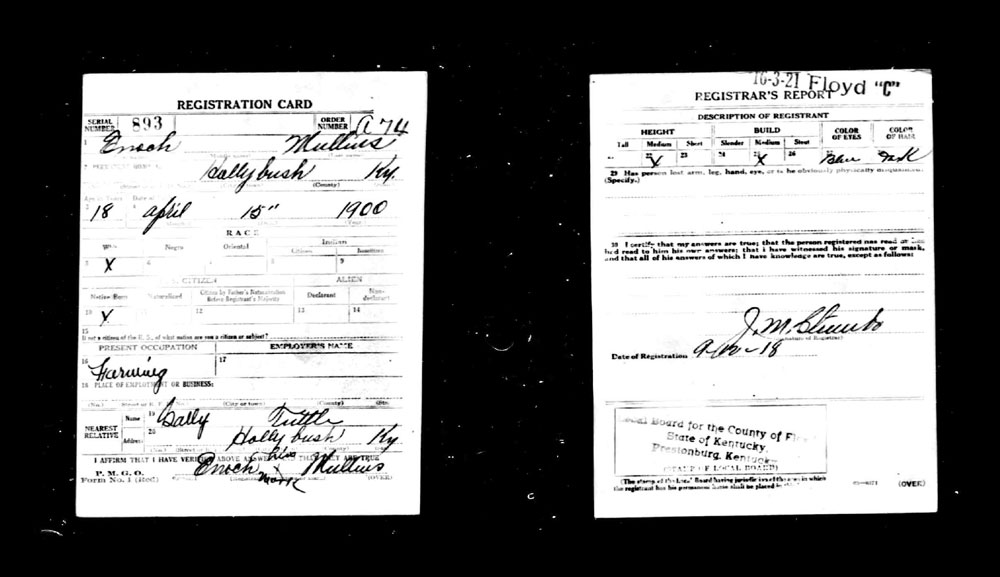 REGISTRATION CARD
SERIAL NUMBER 893 ORDER NUMBER A 74
1 Enoch Mullins
Hollybush Ky.
(County)
18 April 15" 1900
RACE
Negro Oriental Indian
Citizen
X 9
CITIZEN ALIEN
Native Born Naturalized Citizen by Father's Naturalization Before Registrant's Majority Declarant Non-declarant
10 X 12 13 14
15
If not a citizen of the U. S., of what nation are you a citizen or subject?
PRESENT OCCUPATION EMPLOYER'S NAME
16 Farming 17
18 PLACE OF EMPLOYMENT OR BUSINESS:
(No.) (City or town) (County)
NEAREST RELATIVE Name 19 Sally Tuttle
Address 20 Hollybush Ky
I AFFIRM THAT I HAVE VERIFIED ABOVE ANSWERS THAT THEY ARE TRUE
P. M. G. O.
Form No. 1 (Red) Enoch his X mark Mullins (OVER)
16-3-21 Floyd "C"
REGISTRAR'S REPORT
DESCRIPTION OF REGISTRANT
HEIGHT BUILD COLOR OF EYES COLOR OF HAIR
Tall Medium Short Slender Medium Stout
X 23 24 X 26 Blue Dark
29 Has person lost arm, leg, hand, eye, or is he obviously physically disqualified?
(Specify.)
30 I certify that my answers are true; that the person registered has read or has
had read to him his own answers; that I have witnessed his signature or mark,
and that all of his answers of which I have knowledge are true, except as follows:
J. M. Stumbo
(Signature of Registrar)
Date of Registration
Local Board for the County of Floyd
State of Kentucky,
Prestonburg, Kentucky
(STAMP OF LOCAL BOARD)
(The stamp of the Local Board having jurisdiction of the area in which
the registrant has his permanent home shall be placed in
(OVER)